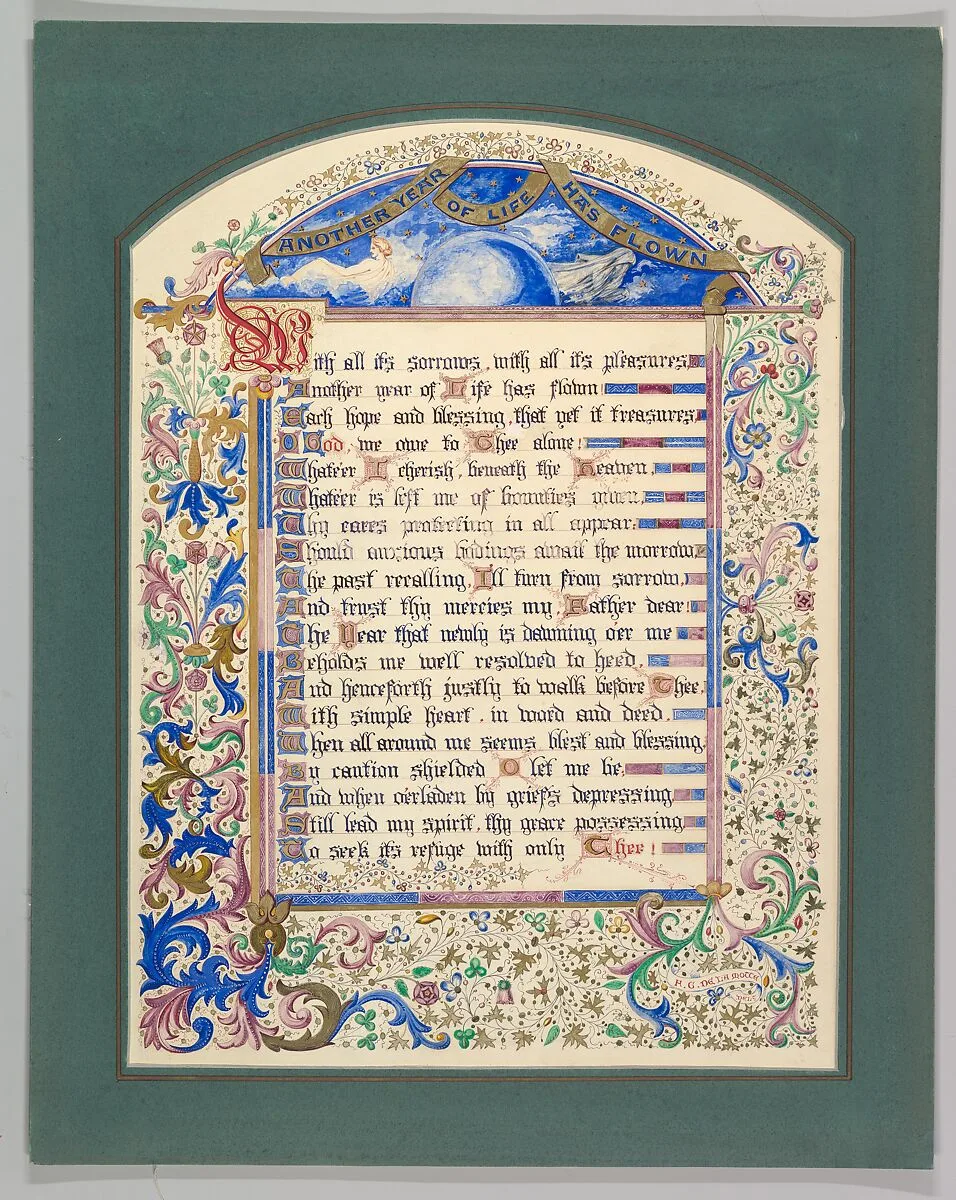 ANOTHER YEAR OF LIFE HAS FLOWN
With all its sorrows, with all its pleasures,
Another year of Life has flown
Each hope and blessing, that yet it treasures,
O God, we owe to Thee alone!
Whate'er I cherish, beneath the Heaven,
Whate'er is left me of bounties given,
Thy cares protecting in all appear:
Should anxious bodings await the morrow,
The past recalling, I'll turn from sorrow,
And trust thy mercies my Father dear!
The Year that newly is dawning o'er me
Beholds me well resolved to heed,
And henceforth justly to walk before Thee,
With simple heart, in word and deed.
When all around me seems blest and blessing,
By caution shielded O let me be:
And when o'erladen by griefs depressing,
Still lead my spirit, thy grace possessing
To seek its refuge with only Thee!
F. G. DE LA MOTTE